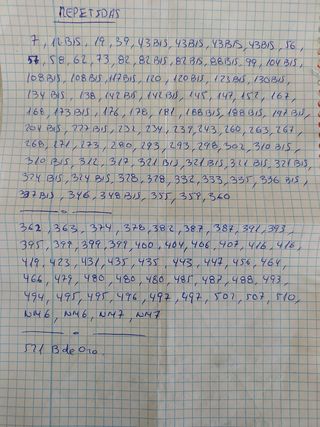 REPETIDAS
7, 12 BIS, 19, 39, 43 BIS, 43 BIS, 43 BIS, 43 BIS, 56,
57, 58, 62, 73, 82, 82 BIS, 82 BIS, 88 BIS, 99, 104 BIS,
108 BIS, 108 BIS, 117 BIS, 120, 120 BIS, 123 BIS, 130 BIS,
134 BIS, 138, 142 BIS, 142 BIS, 145, 147, 152, 167,
168, 173 BIS, 176, 178, 181, 188 BIS, 188 BIS, 197 BIS,
204 BIS, 227 BIS, 232, 234, 239, 243, 260, 263, 267,
268, 271, 273, 280, 293, 293, 298, 302, 310 BIS,
310 BIS, 312, 317, 321 BIS, 321 BIS, 321 BIS, 321 BIS,
324 BIS, 324 BIS, 328, 328, 332, 333, 335, 336 BIS,
337 BIS, 346, 348 BIS, 355, 359, 360
362, 363, 374, 378, 382, 387, 387, 391, 393,
395, 399, 399, 399, 400, 404, 406, 407, 416, 416,
419, 423, 431, 435, 435, 443, 447, 456, 464,
466, 479, 480, 480, 480, 485, 487, 488, 493,
494, 495, 495, 496, 497, 497, 502, 507, 510,
NM6, NM6, NM7, NM7
521 B de Oro.